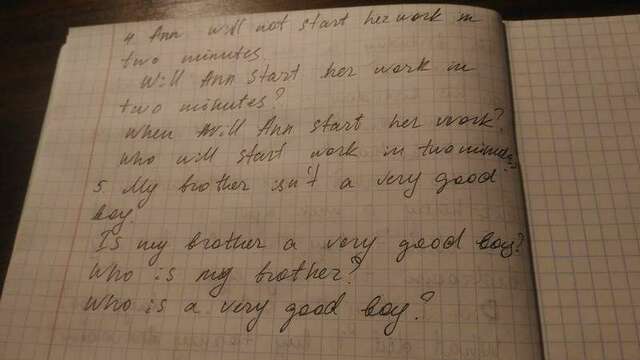 4 Ann will not start her work in
two minutes.
Will Ann start her work in
two minutes?
When will Ann start her work?
Who will start work in two minutes
5 My brother isn't a very good
boy.
Is my brother a very good boy?
Who is my brother?
Who is a very good boy?